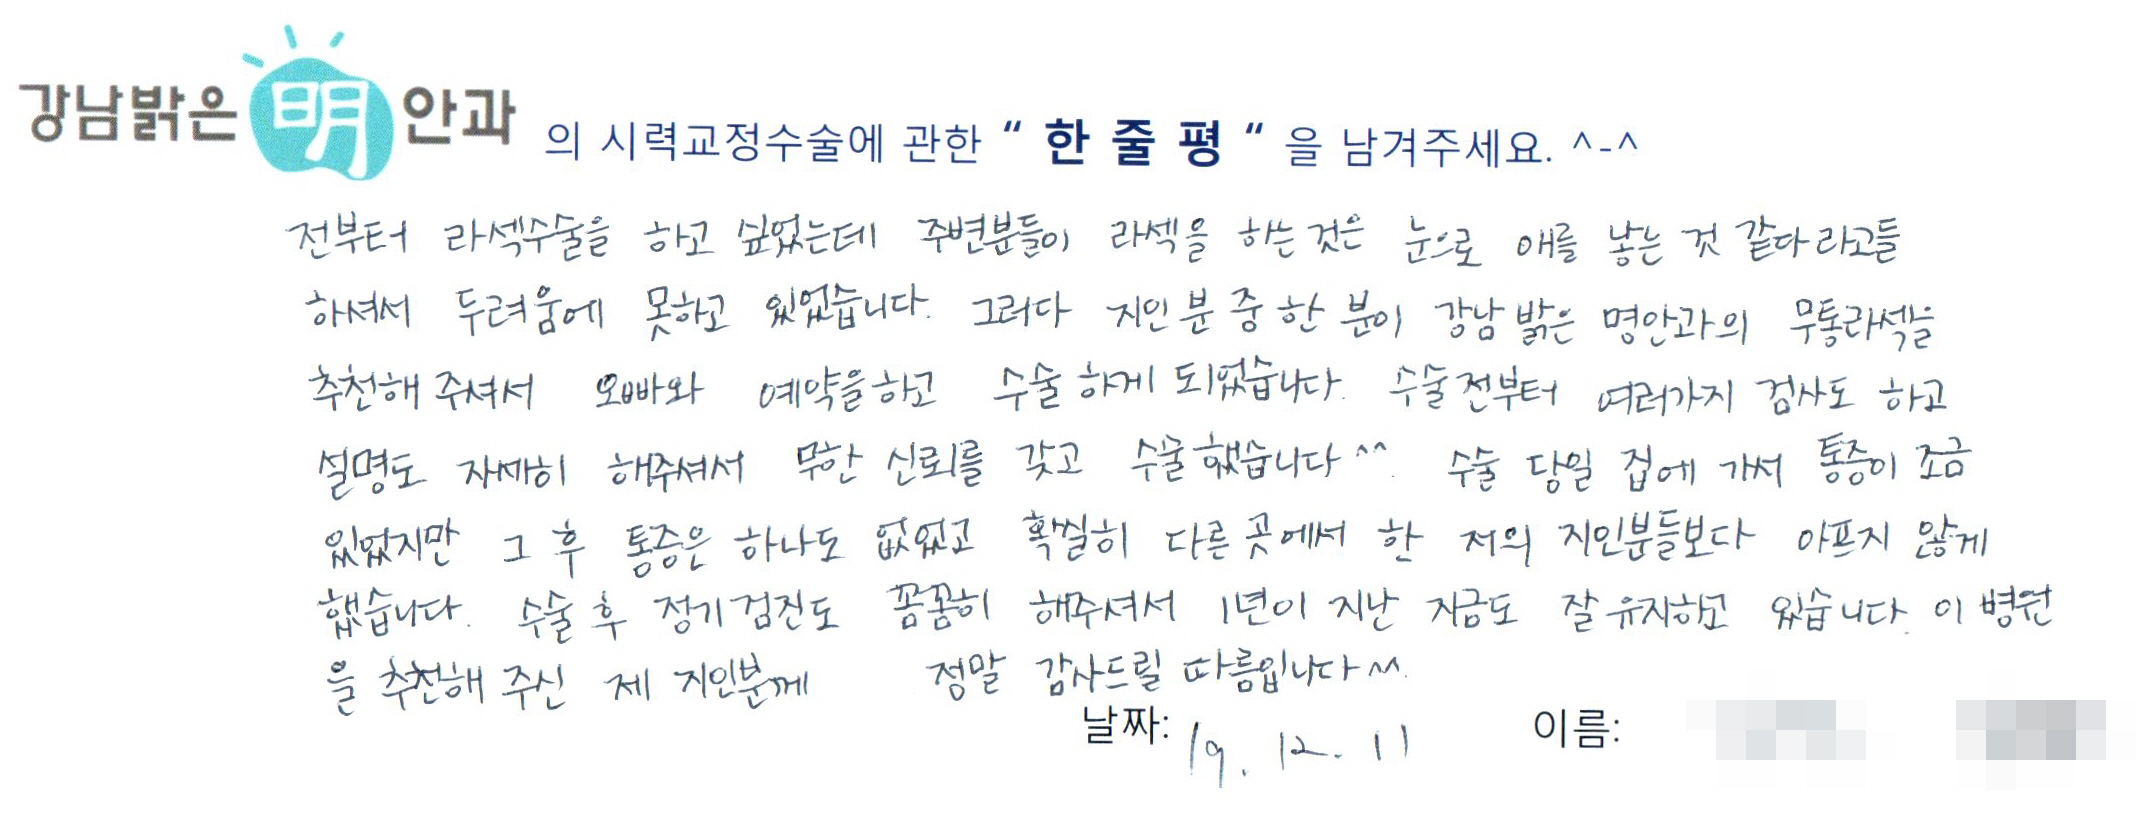 강남밝은 明 안과 의 시력교정수술에 관한 “ 한 줄 평 “ 을 남겨주세요. ^-^
전부터 라섹수술을 하고 싶었는데 주변분들이 라섹을 하는것은 눈으로 애를 낳는 것 같다라고들
하셔서 두려움에 못하고 있었습니다. 그러다 지인분 중 한 분이 강남 밝은 명안과의 무통라섹을
추천해 주셔서 오빠와 예약을하고 수술하게 되었습니다. 수술전부터 여러가지 검사도 하고
설명도 자세히 해주셔서 무한 신뢰를 갖고 수술했습니다^^. 수술 당일 집에 가서 통증이 조금
있었지만 그 후 통증은 하나도 없었고 확실히 다른곳에서 한 저의 지인분들보다 아프지 않게
했습니다. 수술 후 정기검진도 꼼꼼히 해주셔서 1년이 지난 지금도 잘 유지하고 있습니다. 이 병원
을 추천해 주신 제 지인분께 정말 감사드릴 따름입니다^^.
날짜: 19. 12. 11 이름: